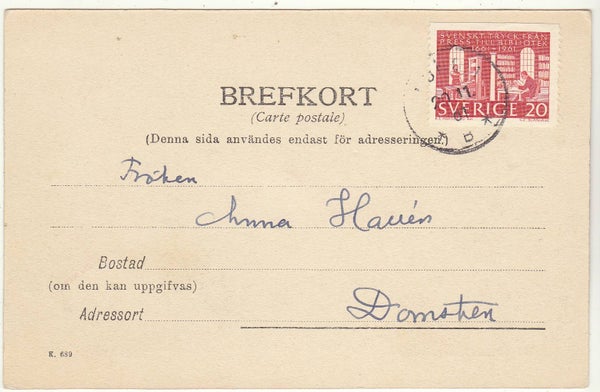 SVENSKT TRYCK FRÅN
PRESS TILL BIBLIOTEK
1661 1961
SVERIGE 20
11
B
BREFKORT
(Carte postale)
(Denna sida användes endast för adresseringen.)
Fröken
Anna
Bostad
(om den kan uppgifvas)
Adressort
Domsten
K. 689